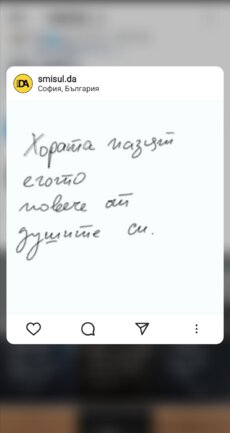 DA
smisul.da
София, България
Хората пазят
егото
повече от
душите си.